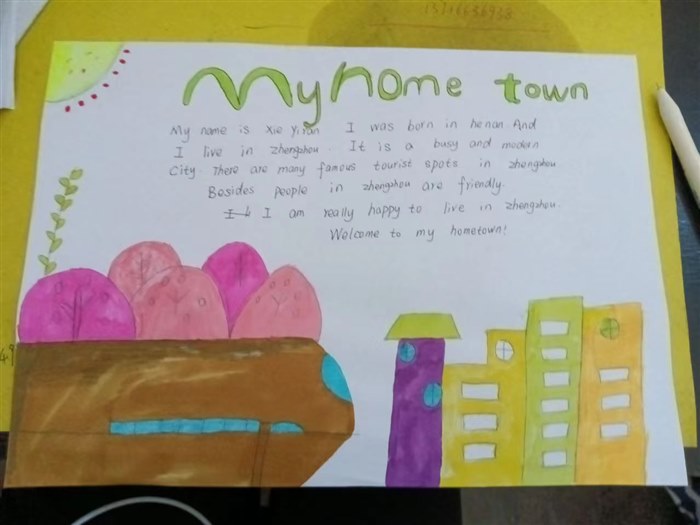 My home town
My name is Xie Yiran I was born in henan And
I live in zhengzhou. It is a busy and modern
City. There are many famous tourist spots in zhengzhou
Besides people in zhengzhou are friendly.
I am really happy to live in zhengzhou.
Welcome to my hometown!